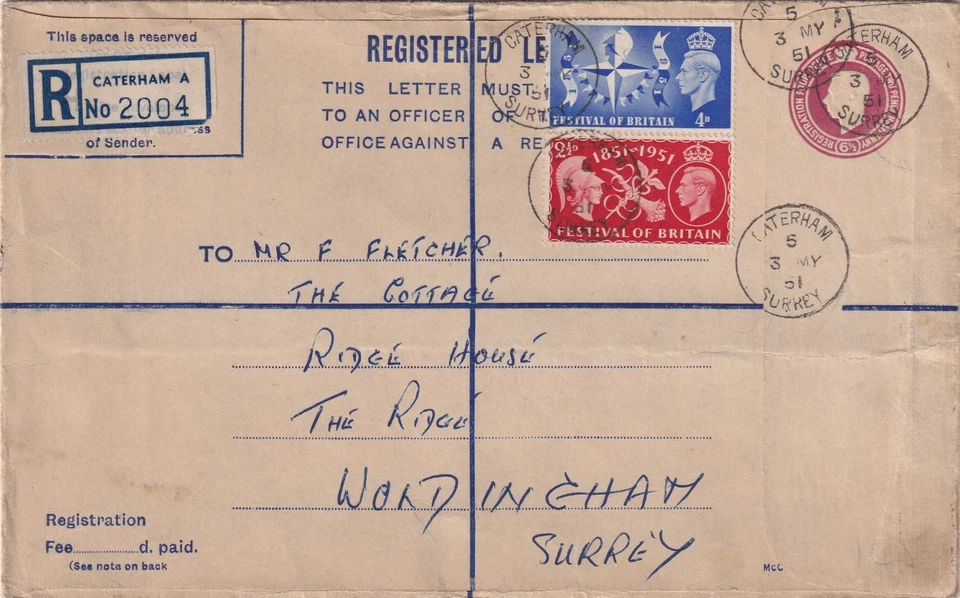 This space is reserved
R CATERHAM A
No 2004
of Sender.
REGISTERED LE
THIS LETTER MUST
TO AN OFFICER OF
OFFICE AGAINST A RE
1851 1951
FESTIVAL OF BRITAIN 4D
2½D 1851-1951
FESTIVAL OF BRITAIN
CATERHAM
3 MY
51
SURREY
CATERHAM
5
3 MY
51
SURREY
CATERHAM
5
3
51
SURREY
CATERHAM
5
3 MY
51
SURREY
REGISTRATION (6½)
TO MR F FLETCHER.
THE COTTAGE
RIDGE HOUSE
THE RIDGE
WOLDINGHAM
SURREY
Registration
Fee..................d. paid.
(See note on back
McC